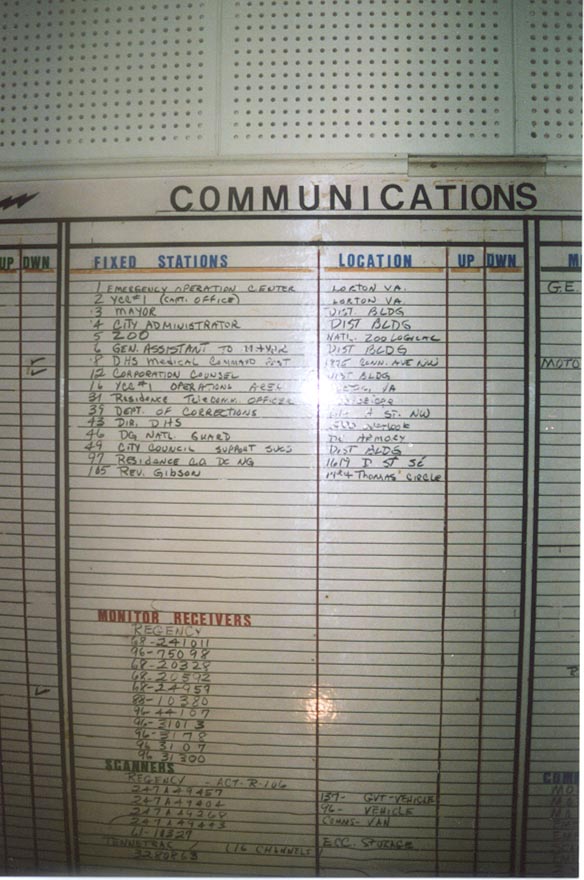 COMMUNICATIONS
UP DWN FIXED STATIONS LOCATION UP DWN
1 EMERGENCY OPERATION CENTER LORTON VA.
2 YCC#1 (CAPT. OFFICE) LORTON VA.
3 MAYOR DIST. BLDG
4 CITY ADMINISTRATOR DIST BLDG
5 ZOO NATL. ZOOLOGICAL
6 GEN. ASSISTANT TO MAYOR DIST BLDG
8 DHS MEDICAL COMMAND POST 1875 CONN. AVE NW
12 CORPORATION COUNSEL DIST BLDG
16 YCC#1 OPERATIONS VA
31 RESIDENCE TELECOMM. OFFICER
39 DEPT. OF CORRECTIONS ST. NW
43 DIR. DHS
46 DC NATL. GUARD DC ARMORY
49 CITY COUNCIL SUPPORT SVCS DIST BLDG
97 RESIDENCE C.G. DC NG 1619 D ST SE
105 REV. GIBSON THOMAS CIRCLE
G.E.
MOTO
MONITOR RECEIVERS
REGENCY
68-241011
96-75098
68-20328
68-20592
68-24959
88-10380
96-44107
96-31013
96-3178
96 3107
96 31300
SCANNERS
REGENCY - ACT-R-106
247A49457 137- GVT-VEHICLE
247A49404 96- VEHICLE
247A49268 COMMS-VAN
247A49443
61-10327 ECC. STORAGE
TENNETRAC (16 CHANNELS)
3280863